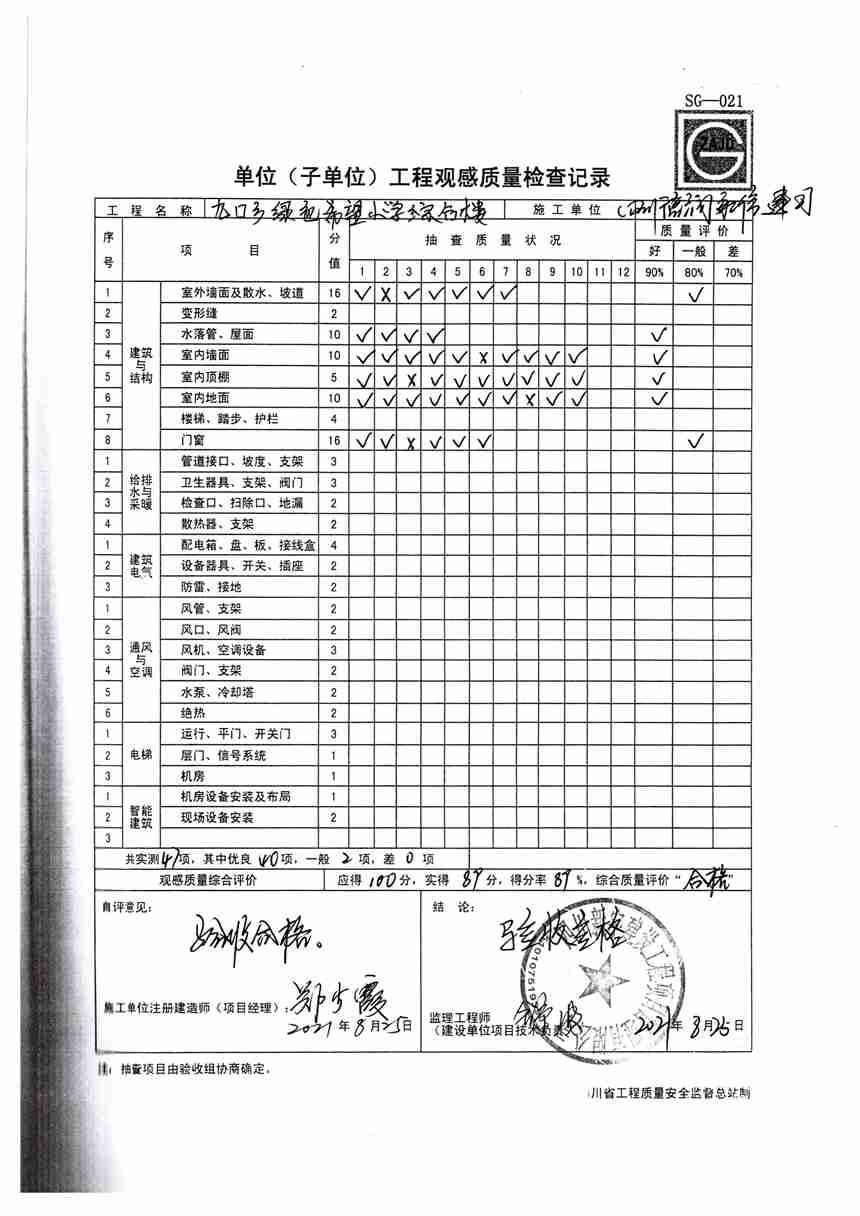 SG—021
ZAJD
单位（子单位）工程观感质量检查记录
工程名称 九口乡绿色希望小学综合楼 施工单位
序号 项目 分值 抽查质量状况 质量评价
好 一般 差
1 2 3 4 5 6 7 8 9 10 11 12 90% 80% 70%
建筑与结构
1 室外墙面及散水、坡道 16 √ X √ √ √ √ √ √
2 变形缝 2
3 水落管、屋面 10 √ √ √ √ √
4 室内墙面 10 √ √ √ √ √ X √ √ √ √ √
5 室内顶棚 5 √ √ X √ √ √ √ √ √ √ √
6 室内地面 10 √ √ √ √ √ √ √ X √ √ √
7 楼梯、踏步、护栏 4
8 门窗 16 √ √ X √ √ √ √
给排水与采暖
1 管道接口、坡度、支架 3
2 卫生器具、支架、阀门 3
3 检查口、扫除口、地漏 2
4 散热器、支架 2
建筑电气
1 配电箱、盘、板、接线盒 4
2 设备器具、开关、插座 2
3 防雷、接地 2
通风与空调
1 风管、支架 2
2 风口、风阀 2
3 风机、空调设备 3
4 阀门、支架 2
5 水泵、冷却塔 2
6 绝热 2
电梯
1 运行、平门、开关门 3
2 层门、信号系统 1
3 机房 1
智能建筑
1 机房设备安装及布局 1
2 现场设备安装 2
3
共实测47项，其中优良40项，一般2项，差0项
观感质量综合评价 应得100分，实得89分，得分率89%，综合质量评价“合格”
自评意见：
验收合格。
施工单位注册建造师（项目经理）：郑少霞
2021年8月25日
结论：
验收合格
监理工程师
（建设单位项目技术负责人）
2021年8月25日
注：抽查项目由验收组协商确定。
川省工程质量安全监督总站制